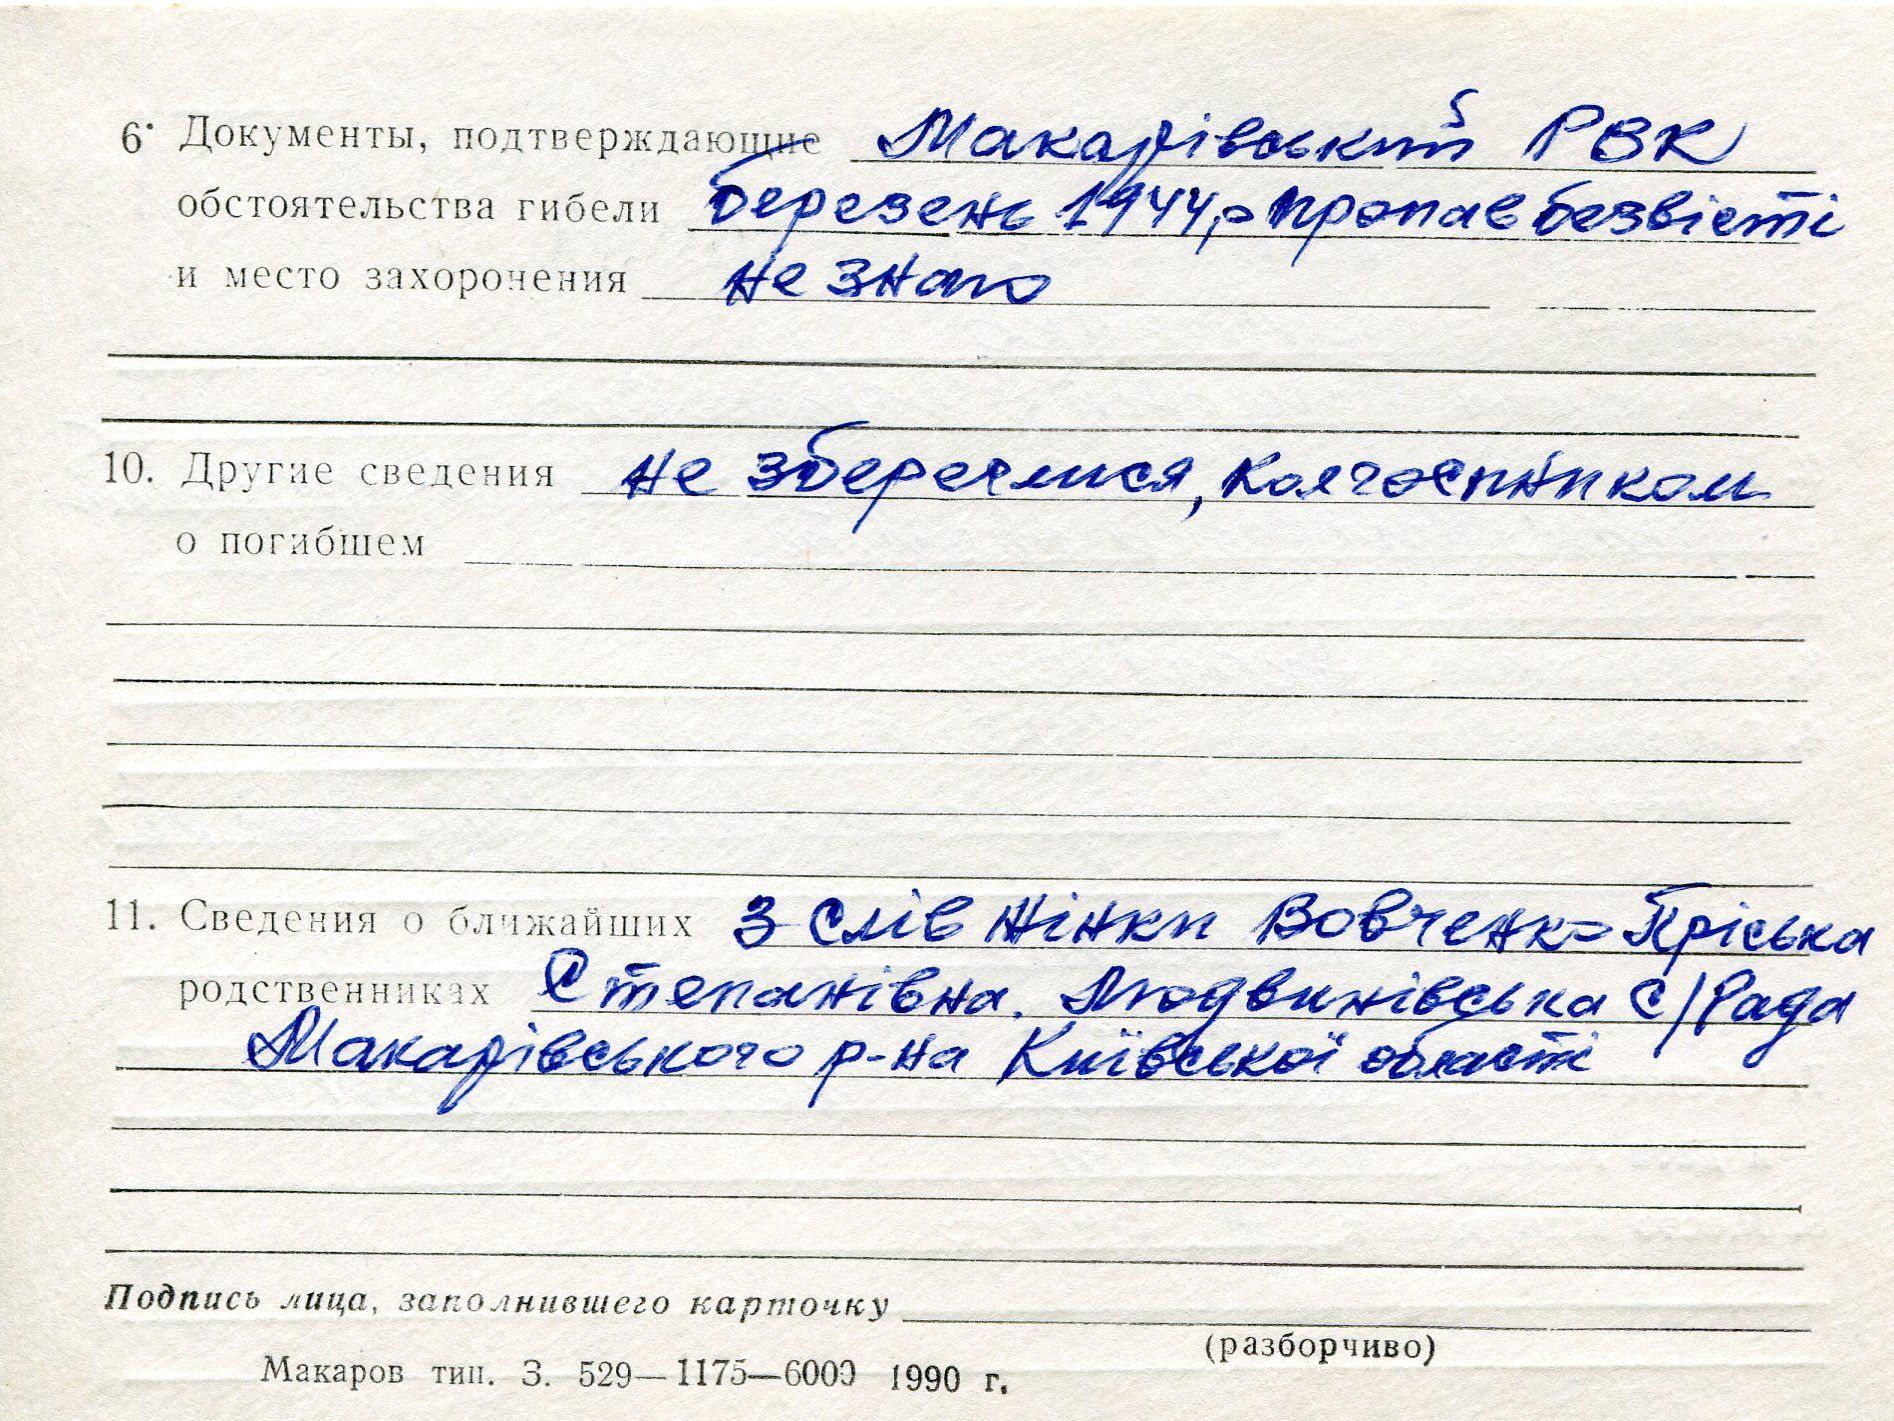 6. Документы, подтверждающие Макарівський РВК
обстоятельства гибели березень 1944, пропав безвісті
и место захоронения не знаю
10. Другие сведения не збереглися, колгоспником
о погибшем
11. Сведения о ближайших З слів жінки Вовченко Пріська
родственниках Степанівна. Людвинівська С/Рада
Макарівського р-на Київської області
Подпись лица, заполнившего карточку
(разборчиво)
Макаров тип. З. 529—1175—6000 1990 г.